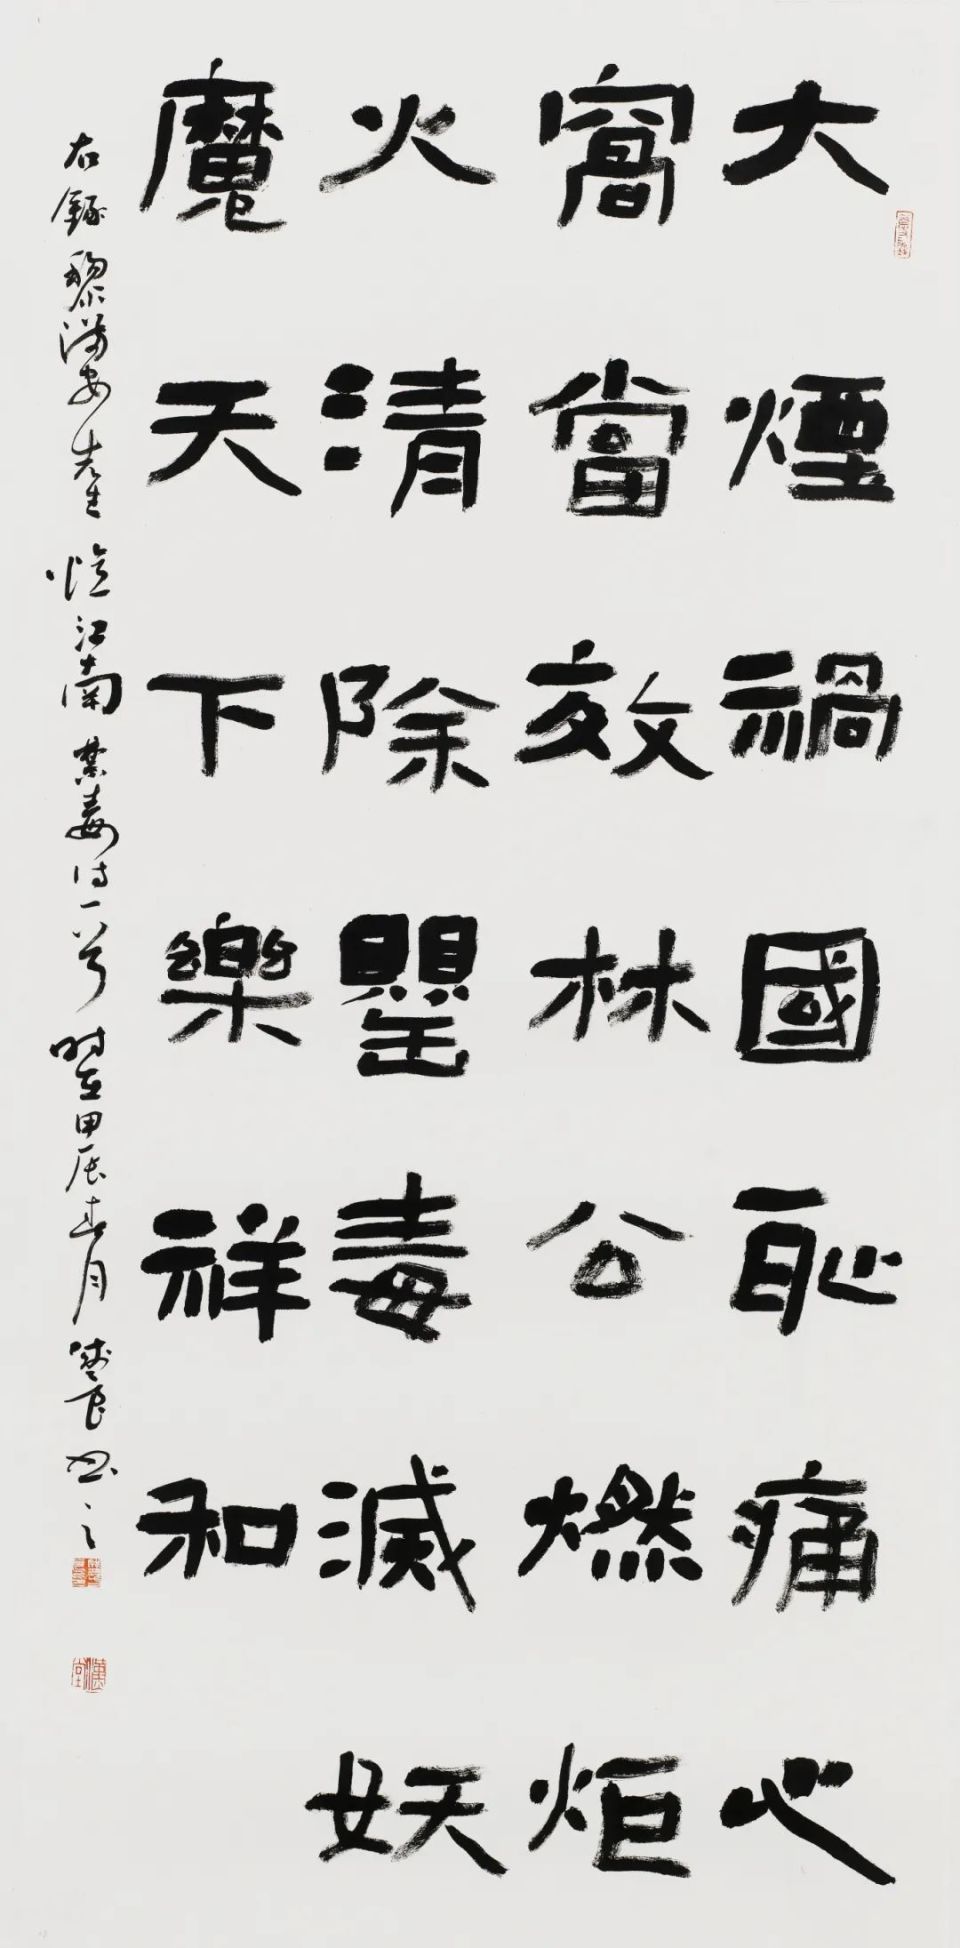 大煙禍國恥痛心
窩當效林公燃炬
火清除罌毒滅妖
魔天下樂祥和
右錄黎澤安先生憶江南禁毒詩一首時在甲辰春月
書之